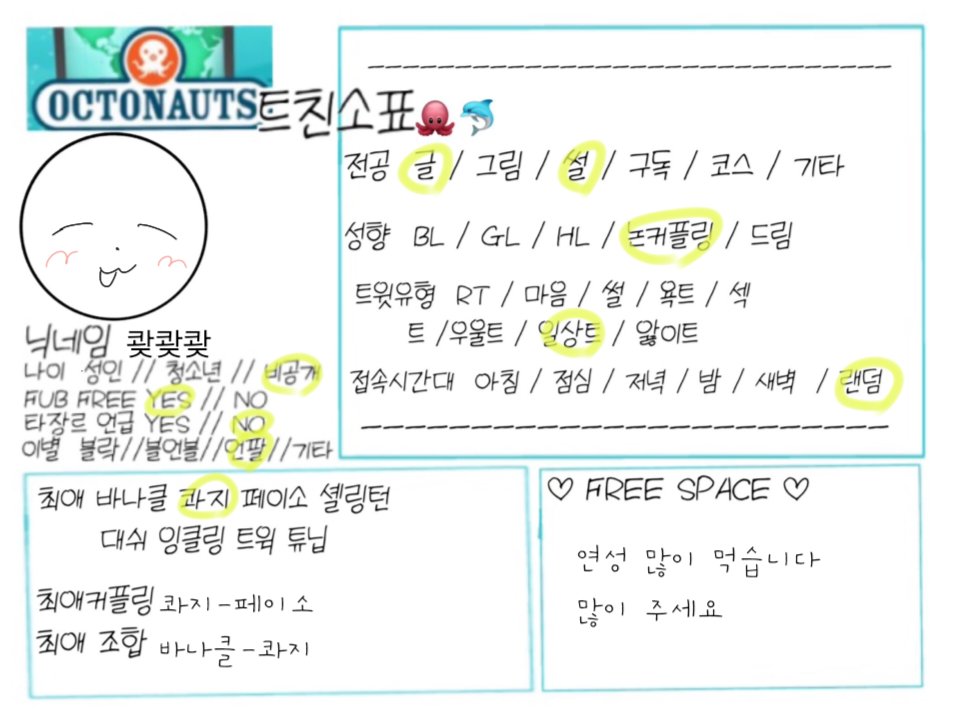 OCTONAUTS 트친소표🐙🐬
닉네임 쾃쾃쾃
나이 성인 // 청소년 // 비공개
FUB FREE YES // NO
타장르 언급 YES // NO
이별 블락//블언블//언팔//기타
전공 글 / 그림 / 썰 / 구독 / 코스 / 기타
성향 BL / GL / HL / 논커플링 / 드림
트윗유형 RT / 마음 / 썰 / 욕트 / 섹
트 /우울트 / 일상트 / 앓이트
접속시간대 아침 / 점심 / 저녁 / 밤 / 새벽 / 랜덤
최애 바나클 콰지 페이소 셸링턴
대쉬 잉클링 트윅 튜닙
최애커플링 콰지-페이소
최애 조합 바나클-콰지
♡ FREE SPACE ♡
연성 많이 먹습니다
많이 주세요